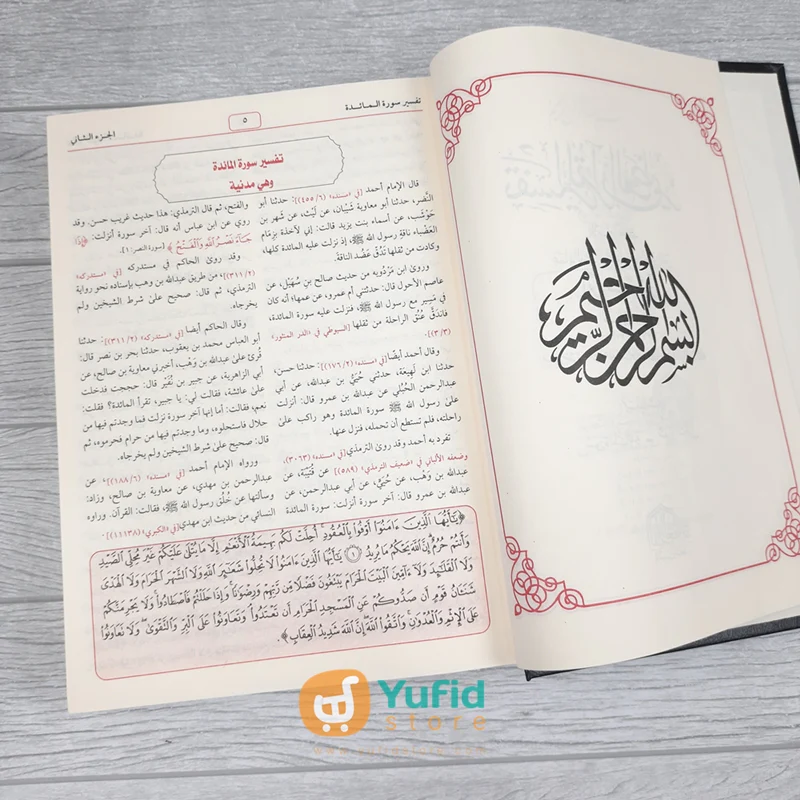 تفسير سورة المائدة
٥
الجزء الثاني
تفسير سورة المائدة
وهي مدنية
قال الإمام أحمد [في «مسنده» (٦/ ٤٥٥)]: حدثنا أبو
النَّضر، حدثنا أبو معاوية شَيْبان، عن لَيْث، عن شهر بن
حَوْشَب، عن أسماء بنت يزيد قالت: إني لآخذة بزِمَام
العَضْباء ناقةِ رسول الله ﷺ، إذ نزلت عليه المائدة كلها،
وكادت من ثقلها تَدُقّ عَضُد الناقة.
وروى ابن مَرْدُويه من حديث صالح بن سُهَيْل، عن
عاصم الأحول قال: حدثتني أم عمرو، عن عمها؛ أنه كان
في مَسِير مع رسول الله ﷺ، فنزلت عليه سورة المائدة،
فانْدَقَّ عُنُق الراحلة من ثقلها [السيوطي في «الدر المنثور»
(٣/ ٣)].
وقال أحمد أيضًا [في «مسنده» (٢/ ١٧٦)]: حدثنا حسن،
حدثنا ابن لَهِيعة، حدثني حُيَيّ بن عبدالله، عن أبي
عبدالرحمن الحُبُلي عن عبدالله بن عمرو قال: أنزلت
على رسول الله ﷺ سورة المائدة وهو راكب على
راحلته، فلم تستطع أن تحمله، فنزل عنها.
تفرد به أحمد وقد روى الترمذي [في «سننه» (٣٠٦٣)،
وضعفه الألباني في «ضعيف الترمذي» (٥٨٩)] عن قُتَيْبَة، عن
عبدالله بن وَهْب، عن حُيَيّ، عن أبي عبدالرحمن، عن
عبدالله بن عمرو قال: آخر سورة أنزلت: سورة المائدة
والفتح، ثم قال الترمذي: هذا حديث غريب حسن. وقد
روي عن ابن عباس أنه قال: آخر سورة أنزلت: ﴿إِذَا
جَاءَ نَصْرُ اللَّهِ وَالْفَتْحُ﴾ [سورة النصر: ١].
وقد روى الحاكم في مستدركه [في «مستدركه»
(٢/ ٣١١)]، من طريق عبدالله بن وهب بإسناده نحو رواية
الترمذي، ثم قال: صحيح على شرط الشيخين ولم
يخرجاه.
وقال الحاكم أيضا [في «مستدركه» (٢/ ٣١١)]: حدثنا
أبو العباس محمد بن يعقوب، حدثنا بحر بن نصر قال:
قُرئ على عبدالله بن وَهْب، أخبرني معاوية بن صالح، عن
أبي الزاهرية، عن جبير بن نُفَيْر قال: حججت فدخلت
على عائشة، فقالت لي: يا جبير، تقرأ المائدة؟ فقلت:
نعم، فقالت: أما إنها آخر سورة نزلت فما وجدتم فيها من
حلال فاستحلوه، وما وجدتم فيها من حرام فحرموه، ثم
قال: صحيح على شرط الشيخين ولم يخرجاه.
ورواه الإمام أحمد [في «مسنده» (٦/ ١٨٨)]، عن
عبدالرحمن بن مهدي، عن معاوية بن صالح، وزاد:
وسألتها عن خُلُق رسول الله ﷺ، فقالت: القرآن. ورواه
النسائي من حديث ابن مهدي [في «الكبرى» (١١١٣٨)]
﴿يَا أَيُّهَا الَّذِينَ ءَامَنُوا أَوْفُوا بِالْعُقُودِ أُحِلَّتْ لَكُم بَهِيمَةُ الْأَنْعَامِ إِلَّا مَا يُتْلَى عَلَيْكُمْ غَيْرَ مُحِلِّي الصَّيْدِ
وَأَنتُمْ حُرُمٌ إِنَّ اللَّهَ يَحْكُمُ مَا يُرِيدُ ١ يَا أَيُّهَا الَّذِينَ ءَامَنُوا لَا تُحِلُّوا شَعَائِرَ اللَّهِ وَلَا الشَّهْرَ الْحَرَامَ وَلَا الْهَدْيَ
وَلَا الْقَلَائِدَ وَلَا ءَامِّينَ الْبَيْتَ الْحَرَامَ يَبْتَغُونَ فَضْلًا مِّن رَّبِّهِمْ وَرِضْوَانًا وَإِذَا حَلَلْتُمْ فَاصْطَادُوا وَلَا يَجْرِمَنَّكُمْ
شَنَئَانُ قَوْمٍ أَن صَدُّوكُمْ عَنِ الْمَسْجِدِ الْحَرَامِ أَن تَعْتَدُوا وَتَعَاوَنُوا عَلَى الْبِرِّ وَالتَّقْوَى وَلَا تَعَاوَنُوا
عَلَى الْإِثْمِ وَالْعُدْوَانِ وَاتَّقُوا اللَّهَ إِنَّ اللَّهَ شَدِيدُ الْعِقَابِ﴾.
بسم الله الرحمن الرحيم
Yufid
store